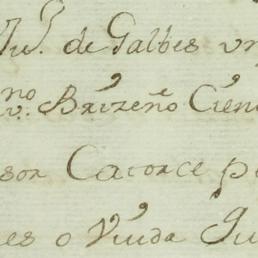 Ju.º de Galbes vn
no v.º Brizeño Cien
sor Catorce p
es o Viuda Ju